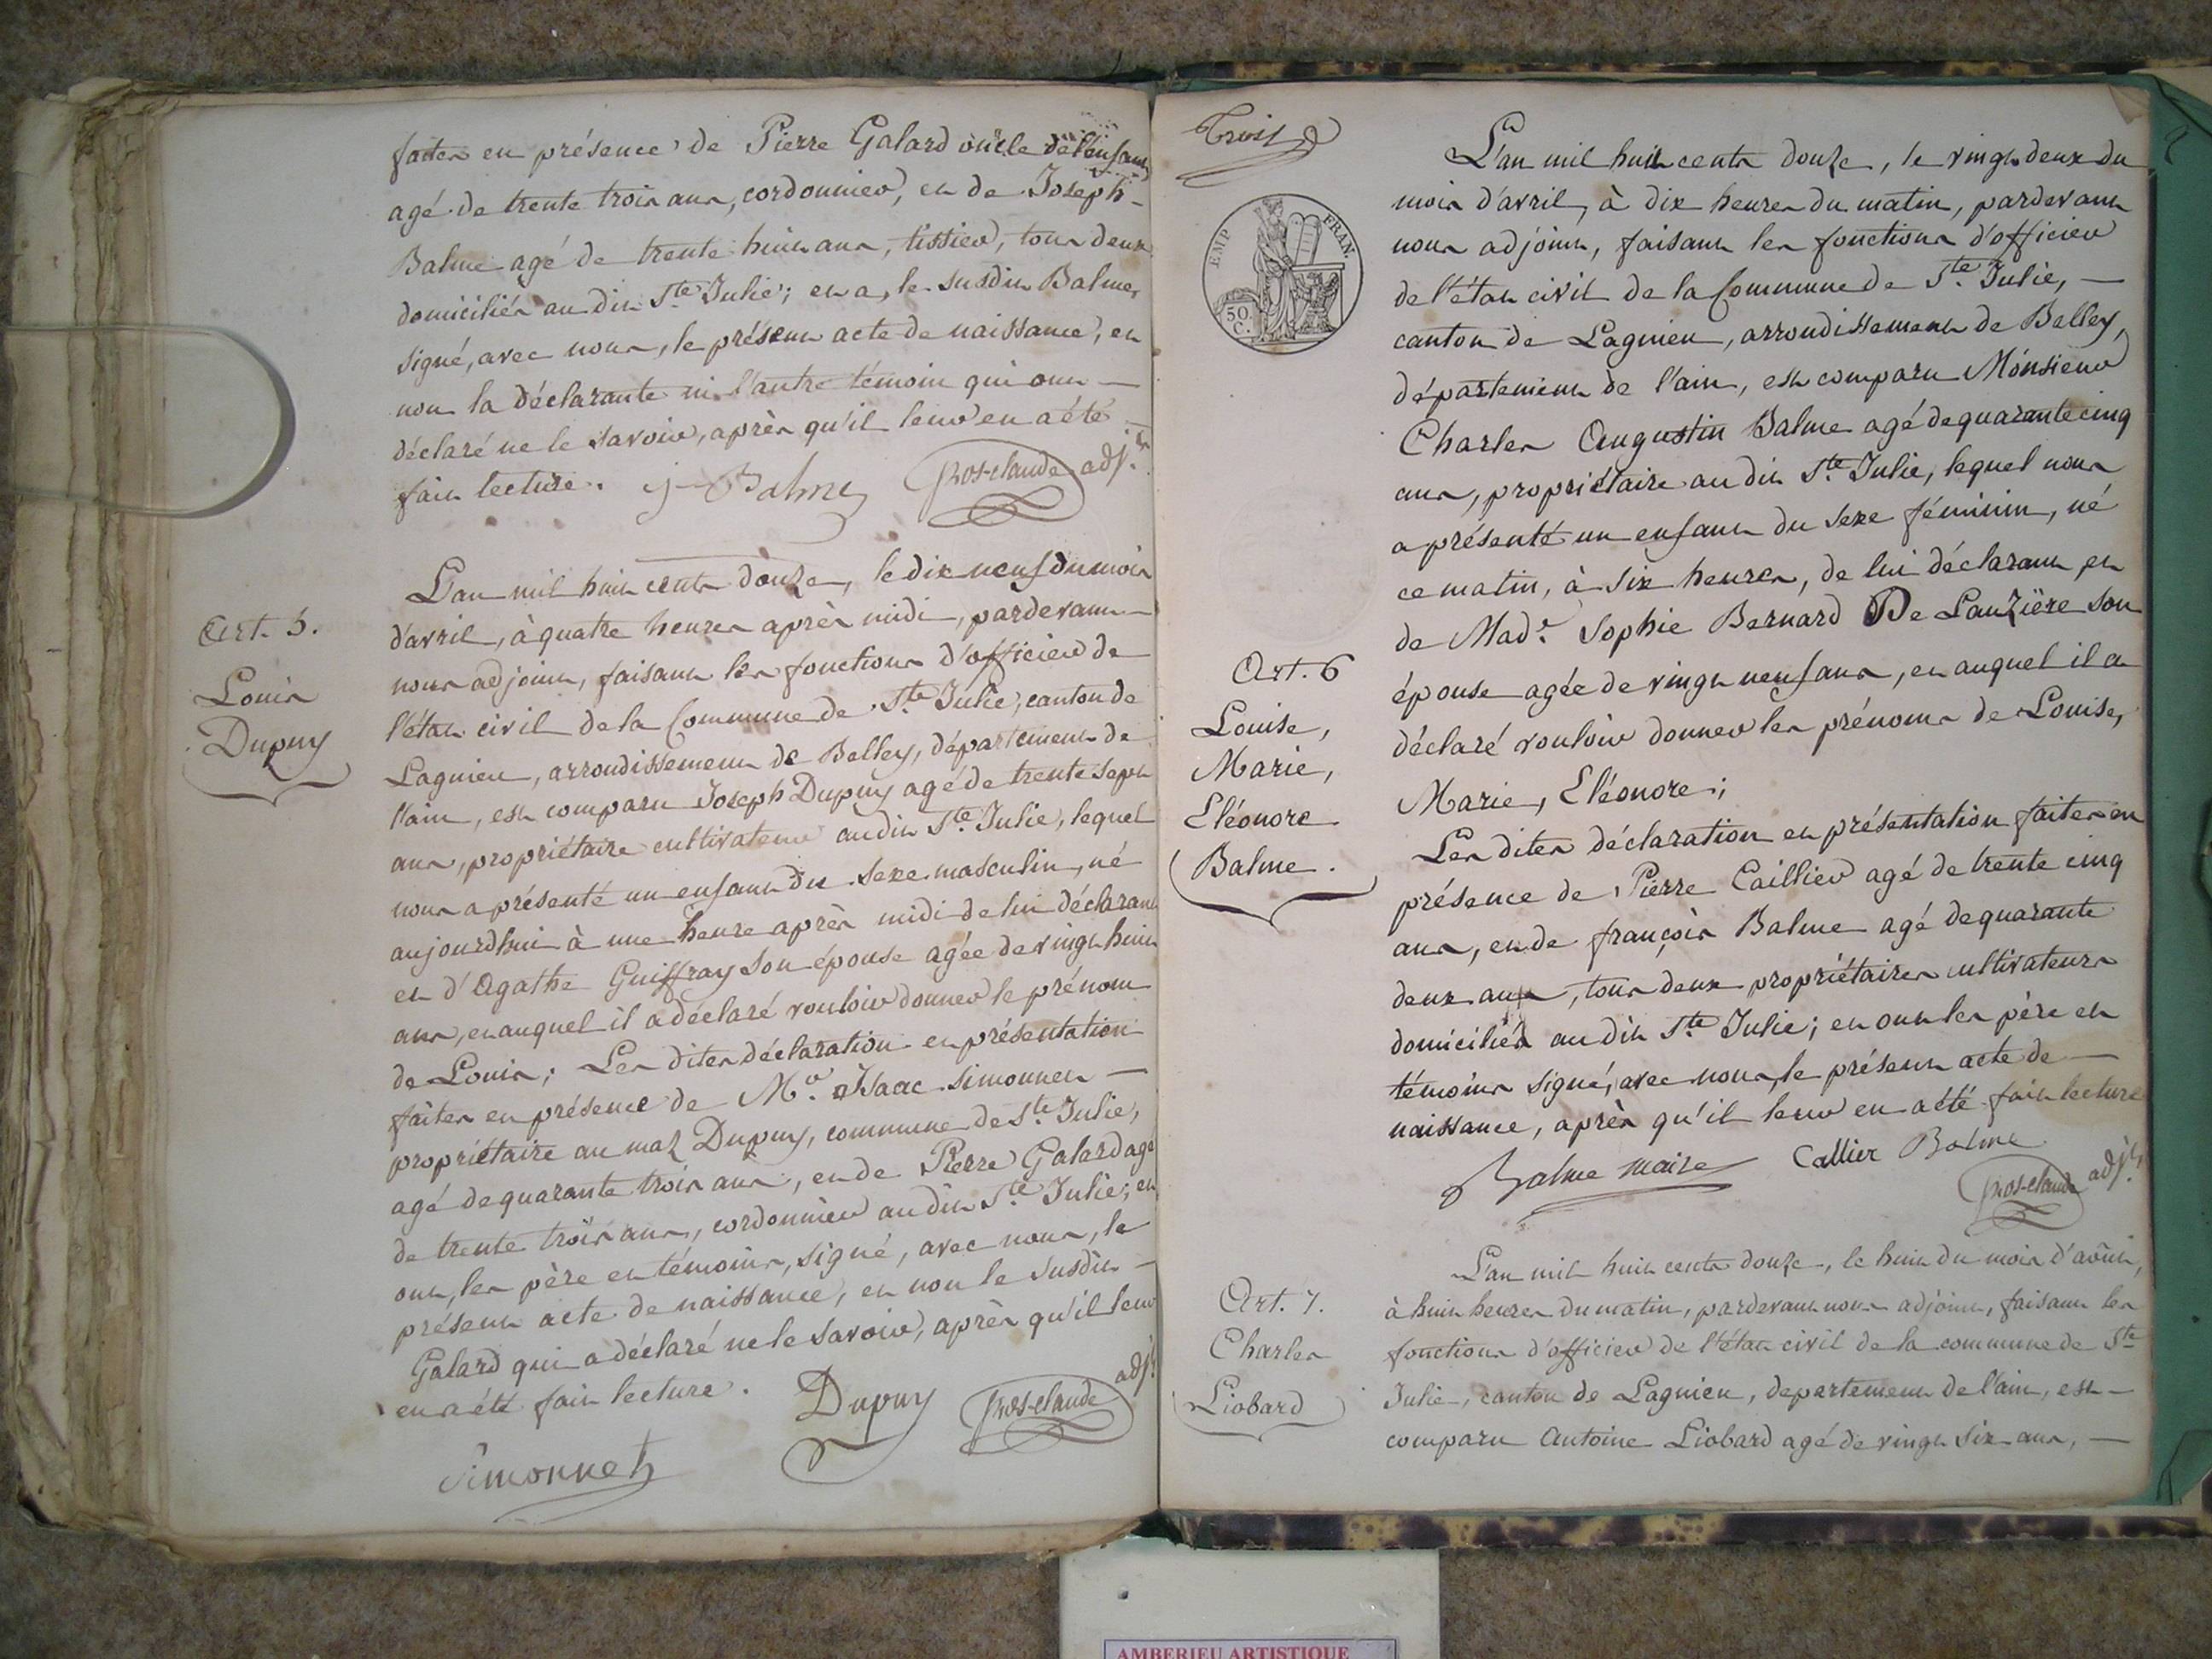 faites en présence de Pierre Galard oncle de l'enfant
agé de trente trois ans, cordonnier, et de Joseph -
Balme agé de trente huit ans, tissier, tous deux
domiciliés au dit Ste Julie; et a, le susdit Balme,
signé, avec nous, le présent acte de naissance, et
non la déclarante ni l'autre témoin qui ont —
déclaré ne le savoir, après qu'il leur en a été
fait lecture. j Balme Gros-claude adj.t
Art. 5.
Louis
Dupuy
L'an mil huit cents douze, le dix neuf du mois
d'avril, à quatre heures après midi, pardevant —
nous adjoint, faisant les fonctions d'officier de
l'état civil de la Commune de Ste Julie, canton de
Lagnieu, arrondissement de Belley, département de
l'ain, est comparu Joseph Dupuy agé de trente sept
ans, propriétaire cultivateur au dit Ste Julie, lequel
nous a présenté un enfant du sexe masculin, né
aujourdhui à une heure après midi de lui déclarant
et d'Agathe Guiffray son épouse agée de vingt huit
ans, et auquel il a déclaré vouloir donner le prénom
de Louis; Les dites déclaration et présentation
faites en présence de Mr. Isaac Simonnet —
propriétaire au maz Dupuy, commune de Ste Julie,
agé de quarante trois ans, et de Pierre Galard agé
de trente trois ans, cordonnier au dit Ste Julie; et
ont, les père et témoins, signé, avec nous, le
présent acte de naissance, et non le susdit —
Galard qui a déclaré ne le savoir, après qu'il leur
en a été fait lecture. Dupuy Gros-claude adj.t
Simonnet
Trois
EMP. FRAN.
50 C.
L'an mil huit cents douze, le vingt deux du
mois d'avril, à dix heures du matin, pardevant
nous adjoint, faisant les fonctions d'officier
de l'état civil de la Commune de Ste Julie, —
canton de Lagnieu, arrondissement de Belley,
département de l'ain, est comparu Monsieur
Charles Augustin Balme agé de quarante cinq
ans, propriétaire au dit Ste Julie, lequel nous
a présenté un enfant du sexe féminin, né
ce matin, à six heures, de lui déclarant et
de Made. Sophie Bernard De Lauzière son
épouse agée de vingt neuf ans, et auquel il a
déclaré vouloir donner les prénoms de Louise,
Marie, Eléonore;
Art. 6
Louise,
Marie,
Eléonore
Balme.
Les dites déclaration et présentation faites en
présence de Pierre Caillier agé de trente cinq
ans, et de françois Balme agé de quarante
deux ans, tous deux propriétaires cultivateurs
domiciliés au dit Ste Julie; et ont les père et
témoins signé, avec nous, le présent acte de —
naissance, après qu'il leur en a été fait lecture
Balme maire Callier Balme
Gros-claude adj.t
Art. 7.
Charles
Liobard
L'an mil huit cents douze, le huit du mois d'août,
à huit heures du matin, pardevant nous adjoint, faisant les
fonctions d'officier de l'état civil de la commune de Ste
Julie, canton de Lagnieu, departement de l'ain, est —
comparu Antoine Liobard agé de vingt six ans, —
AMBERIEU ARTISTIQUE